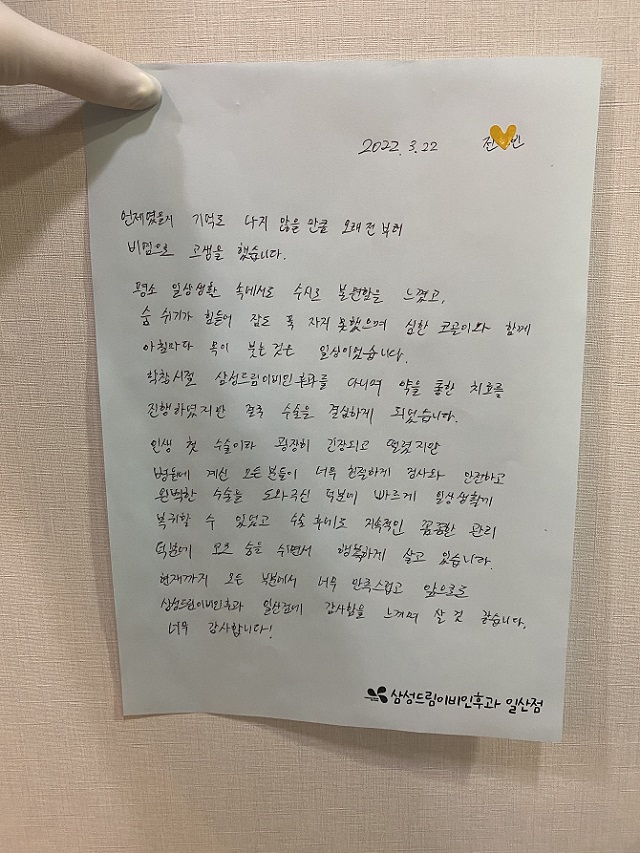 2022. 3. 22 전 인
언제였을지 기억도 나지 않을 만큼 오래 전 부터
비염으로 고생을 했습니다.
평소 일상생활 속에서도 수시로 불편함을 느꼈고,
숨 쉬기가 힘들어 잠도 푹 자지 못했으며 심한 코골이와 함께
아침마다 목이 붓는것은 일상이었습니다.
학창시절 삼성드림이비인후과를 다니며 약을 통한 치료를
진행하였지만 결국 수술을 결심하게 되었습니다.
인생 첫 수술이라 굉장히 긴장되고 떨렸지만
병원에 계신 모든분들이 너무 친절하게 검사와 안전하고
완벽한 수술을 도와주신 덕분에 빠르게 일상생활에
복귀할 수 있었고 수술 후에도 지속적인 꼼꼼한 관리
덕분에 모든 숨을 쉬면서 행복하게 살고 있습니다.
현재까지 모든 부분에서 너무 만족스럽고 앞으로도
삼성드림이비인후과 일산점에 감사함을 느끼며 살 것 같습니다.
너무 감사합니다!
삼성드림이비인후과 일산점